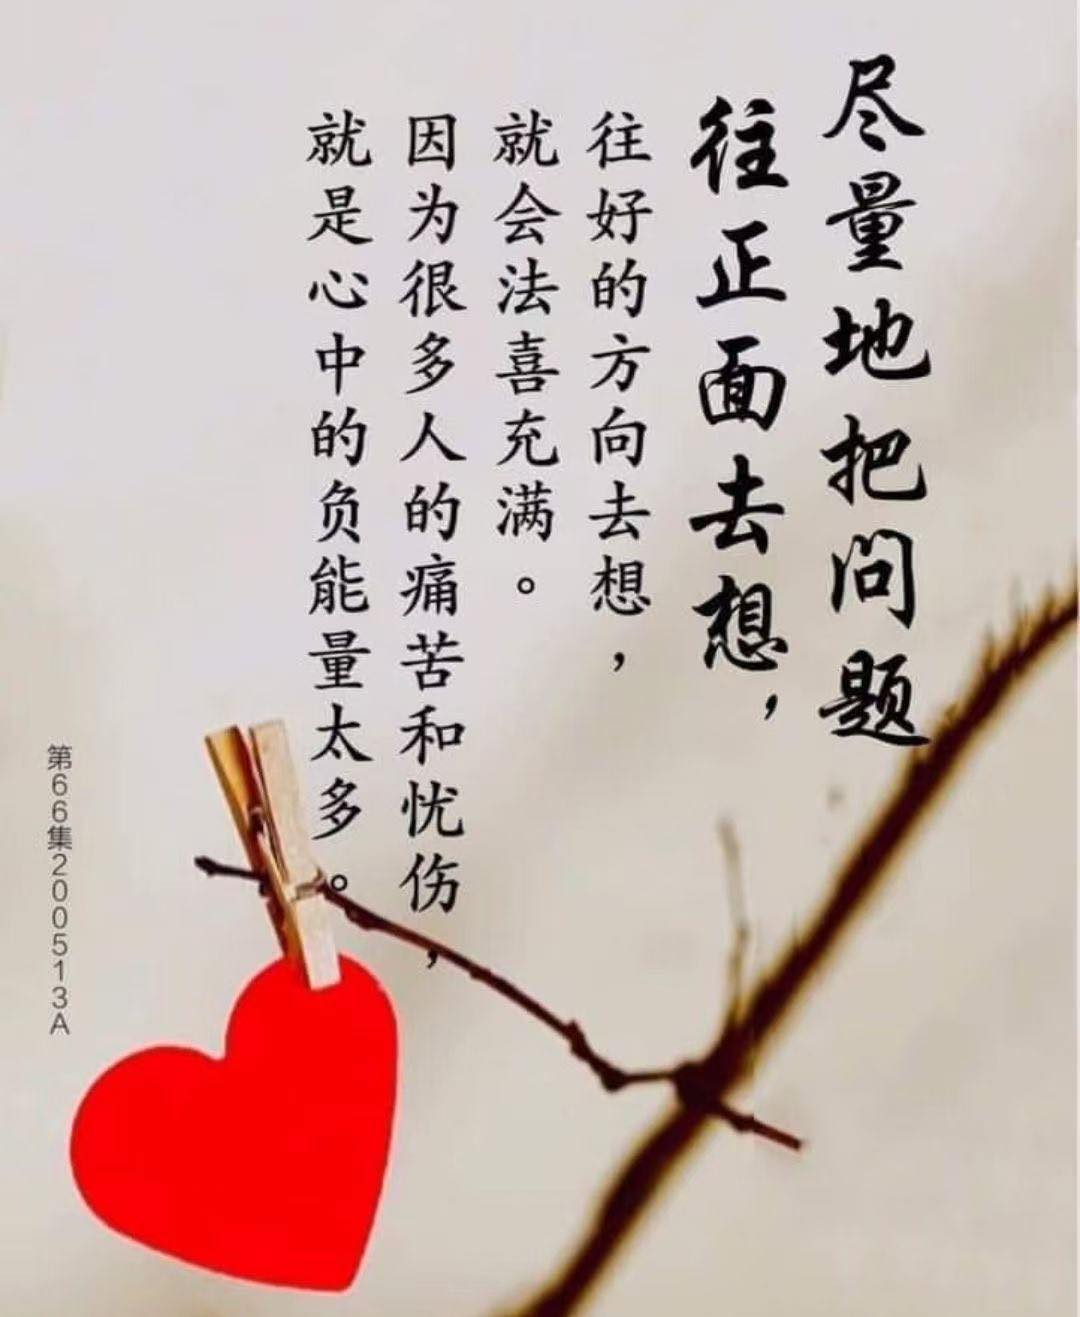 尽量地把问题
往正面去想，
往好的方向去想，
就会法喜充满。
因为很多人的痛苦和忧伤，
就是心中的负能量太多。
第66集200513A